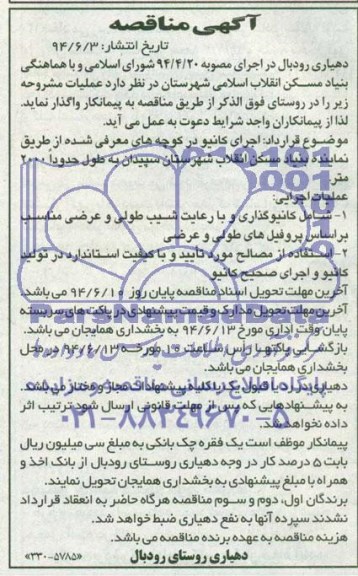 آگهی مناقصه
تاریخ انتشار: ۹۴/۶/۳
دهیاری رودبال در اجرای مصوبه ۹۴/۴/۲۰ شورای اسلامی و با هماهنگی
بنیاد مسکن انقلاب اسلامی شهرستان در نظر دارد عملیات مشروحه
زیر را در روستای فوق الذکر از طریق مناقصه به پیمانکار واگذار نماید.
لذا از پیمانکاران واجد شرایط دعوت به عمل می آید.
موضوع قرارداد: اجرای کانیو در کوچه های معرفی شده از طریق
نماینده بنیاد مسکن انقلاب شهرستان سپیدان به طول حدودا ۲۰۰۰
متر
عملیات اجرایی:
۱- شامل کانیوگذاری و با رعایت شیب طولی و عرضی مناسب
براساس پروفیل های طولی و عرضی
۲- استفاده از مصالح مورد تأیید و با کیفیت استاندارد در تولید
کانیو و اجرای صحیح کانیو
آخرین مهلت تحویل اسناد مناقصه پایان روز ۹۴/۶/۱۰ می باشد.
آخرین مهلت تحویل مدارک و قیمت پیشنهادی در پاکت های سربسته
پایان وقت اداری مورخ ۹۴/۶/۱۳ به بخشداری همایجان می باشد.
بازگشایی پاکتها رأس ساعت مورخه ۹۴/۶/۱۳ در محل
بخشداری همایجان می باشد.
دهیاری در رد یا قبول یک یا کلیه پیشنهادات مجاز و مختار می باشد.
به پیشنهادهایی که پس از مهلت قانونی ارسال شود ترتیب اثر
داده نخواهد شد.
پیمانکار موظف است یک فقره چک بانکی به مبلغ سی میلیون ریال
بابت ۵ درصد کار در وجه دهیاری روستای رودبال از بانک اخذ و
همراه با مبلغ پیشنهادی به بخشداری همایجان تحویل نمایند.
برندگان اول، دوم و سوم مناقصه هرگاه حاضر به انعقاد قرارداد
نشدند سپرده آنها به نفع دهیاری ضبط خواهد شد.
هزینه مناقصه به عهده برنده مناقصه می باشد.
دهیاری روستای رودبال
«۳۳۰-۵۷۸۵»
۰۲۱-۸۸۳۴۹۶۷۰-۵